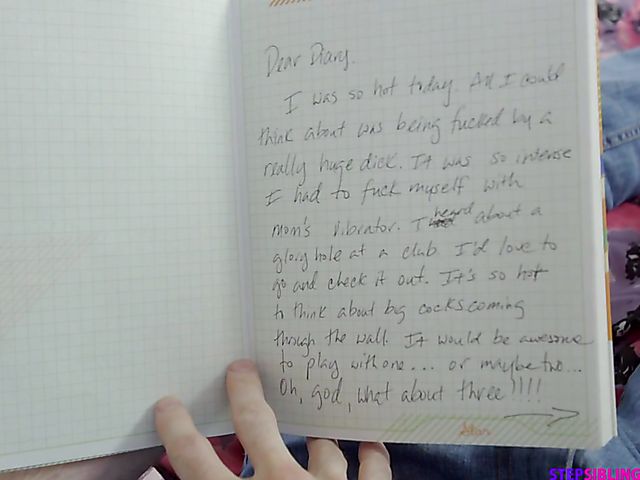 Dear Diary.
I was so hot today. All I could
think about was being fucked by a
really huge dick. It was so intense
I had to fuck myself with
mom's vibrator. I heard about a
glory hole at a club. I'd love to
go and check it out. It's so hot
to think about big cocks coming
through the wall. It would be awesome
to play with one... or maybe two...
Oh, god, what about three!!!!
STEPSIBLING